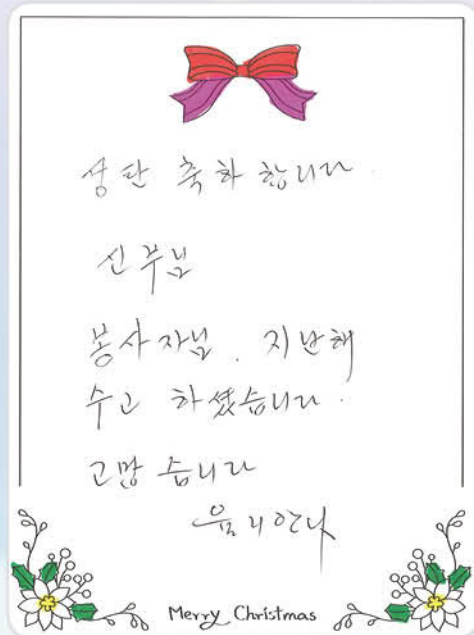 성탄 축하 합니다.
신부님
봉사자님. 지난해
수고 하셨습니다.
고맙 습니다
Merry Christmas